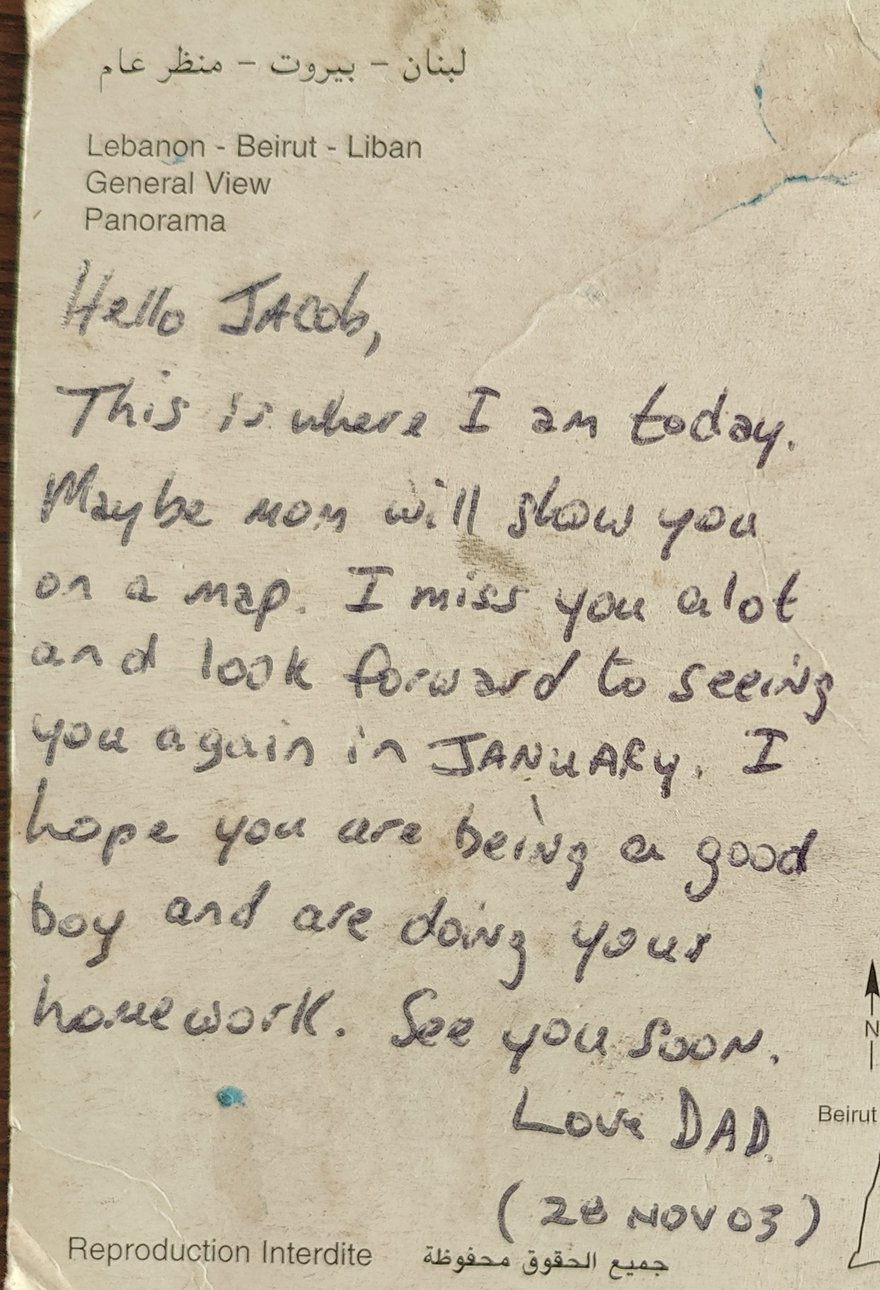 لبنان – بيروت – منظر عام
Lebanon - Beirut - Liban
General View
Panorama
Hello JACob,
This is where I am today.
Maybe mom will show you
on a map. I miss you alot
and look forward to seeing
you again in JANUARY. I
hope you are being a good
boy and are doing your
homework. See you soon.
Love DAD.
(28 NOV 03)
N
Beirut
Reproduction Interdite جميع الحقوق محفوظة